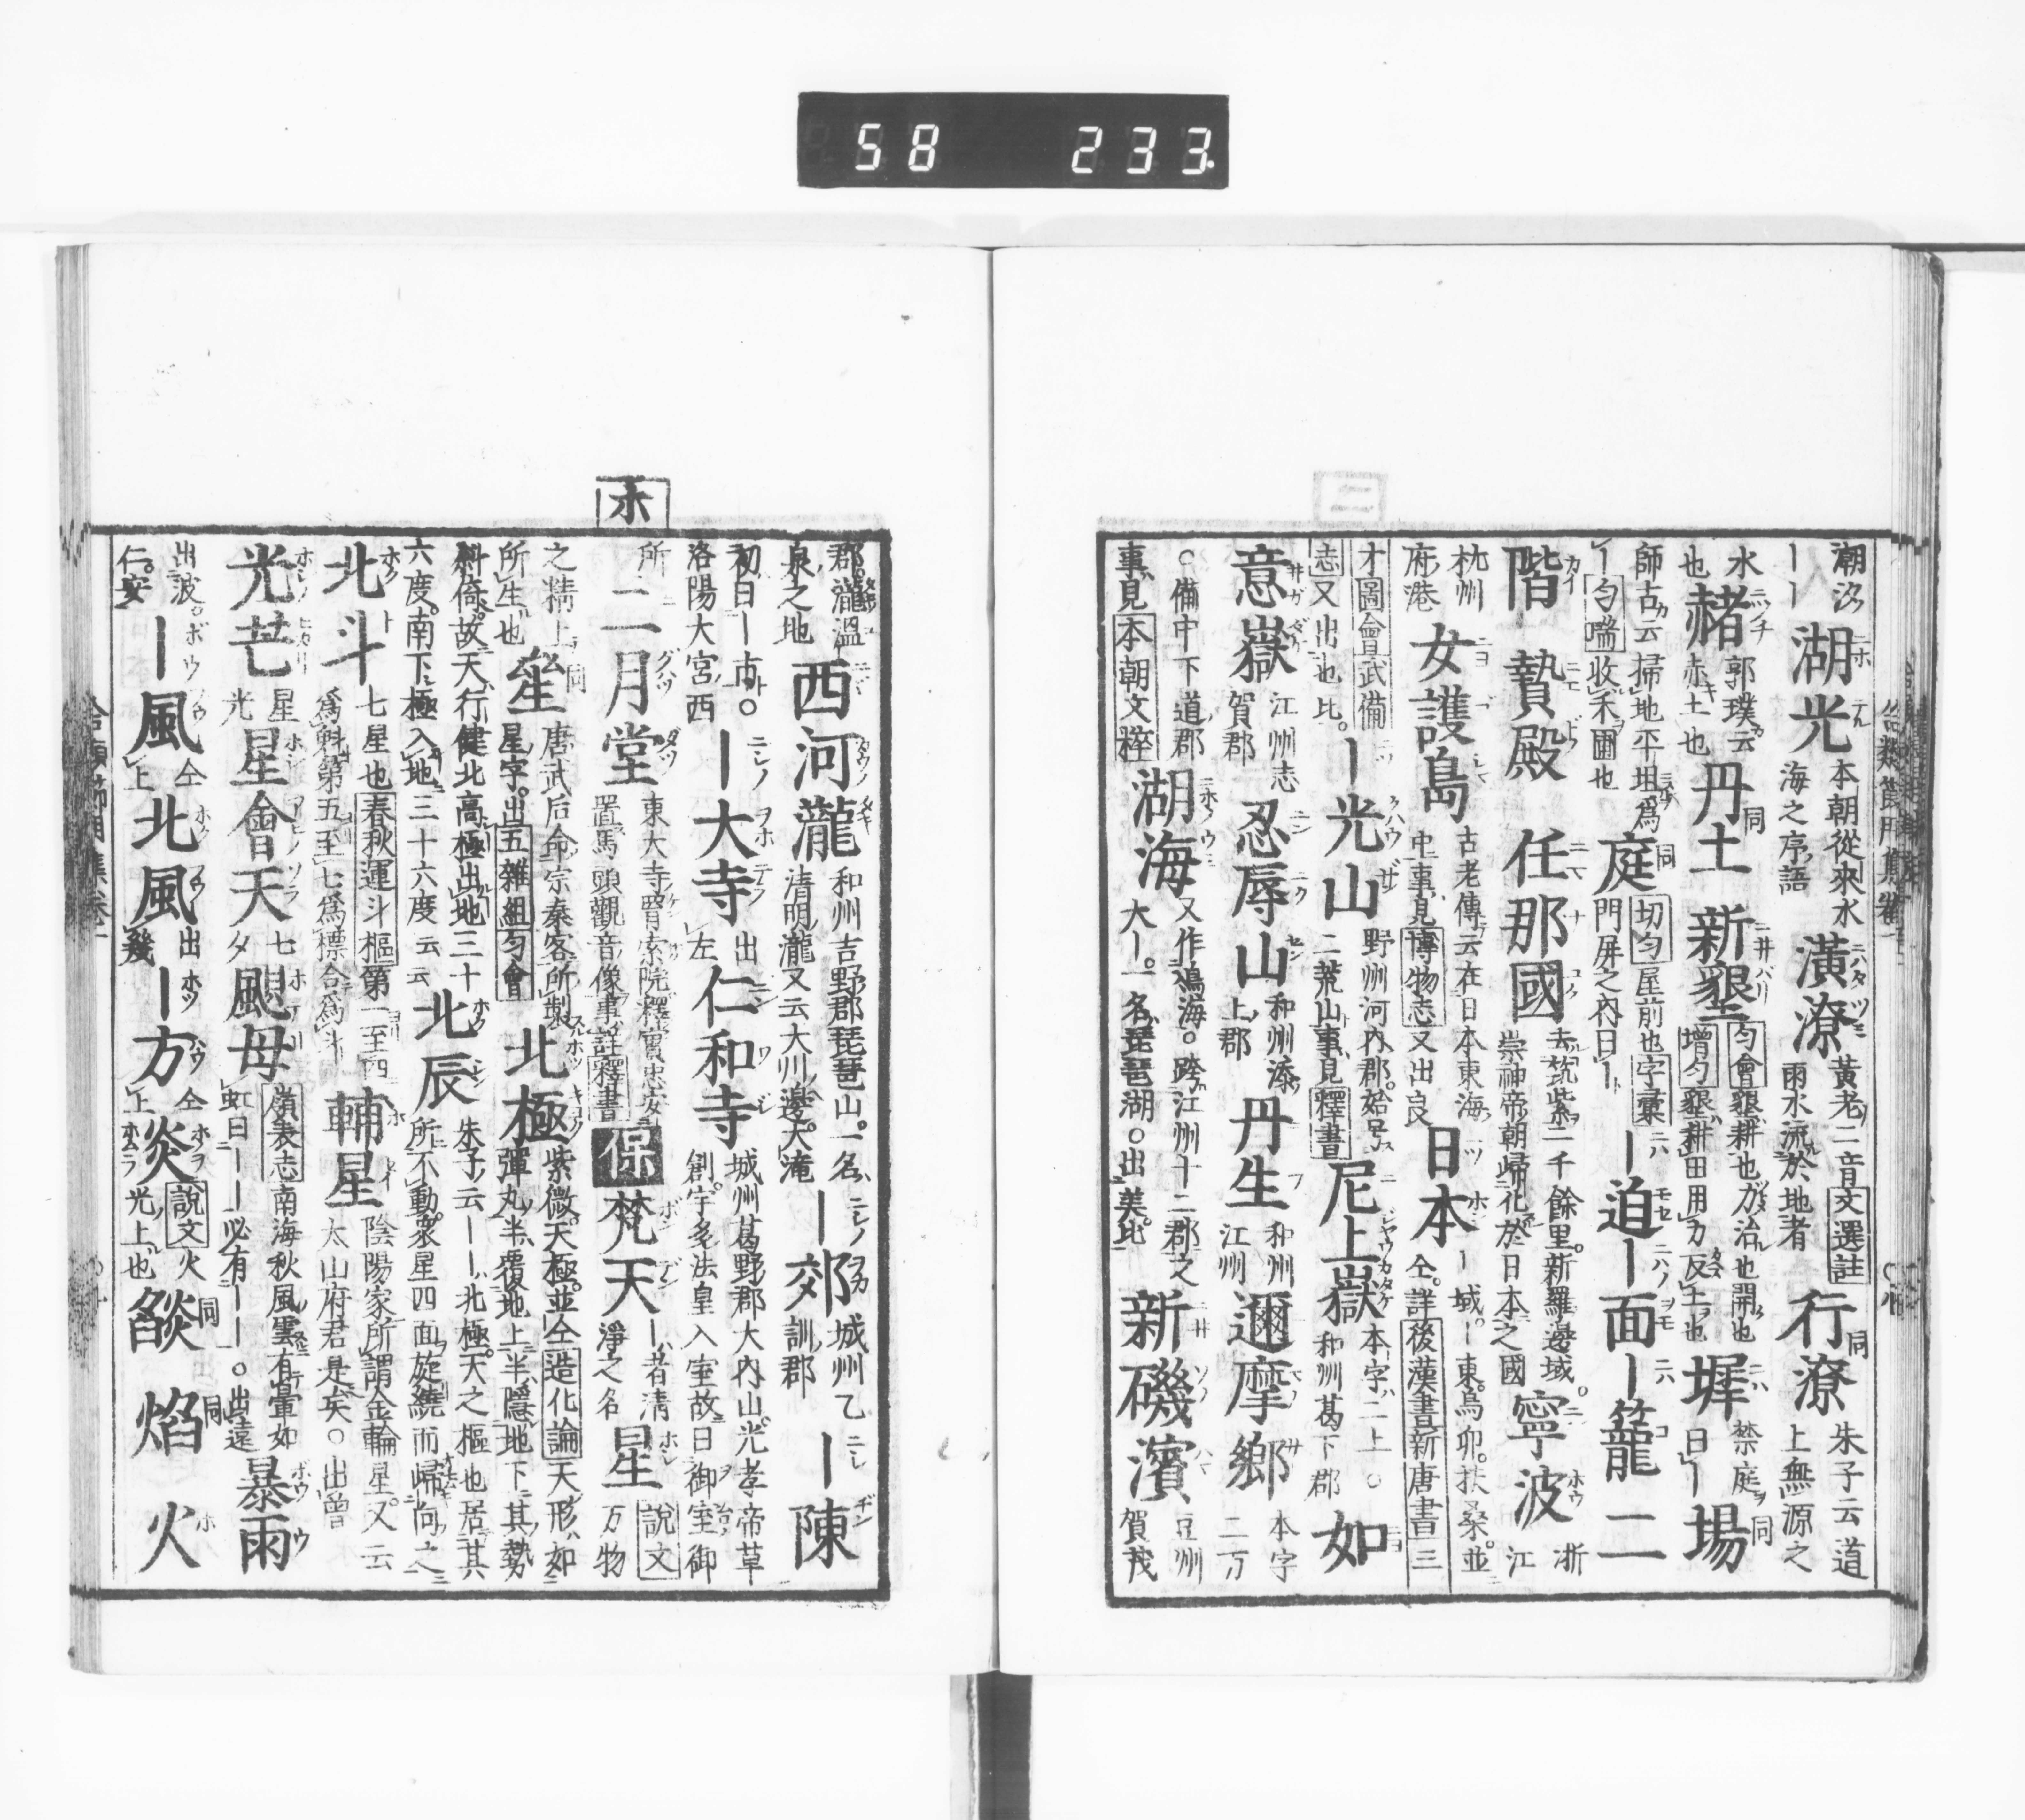 58 233
ニ
潮汐
ーー湖光本朝從來水海之序語潢潦黃老二音文選註雨水流於地者行潦朱子云道上無源之
水也赭郭璞云赤土也丹土新墾匀會墾耕也力治也開也增匀墾耕田用力反土也墀禁庭曰ー場
師古云掃地平坦爲ー匀喘收禾圃也庭切匀屋前也字彙門屏之內曰ーー迫ー面ー籠二
階贄殿任那國去筑紫二千餘里新羅邊域崇神帝朝歸化於日本之國寧波浙江
杭州府港女護島古老傳云在日本東海中事見博物志又出良日本ー域ー東烏卯扶桑並仝詳後漢書新唐書三
才圖會武備志又出也比ー光山野州河內郡二荒山事見釋書尼上嶽本字二上○和州葛下郡如
意嶽江州志賀郡忍辱山和州添上郡丹生和州江州邇摩鄉本字二万
○備中下道郡事見本朝文粹湖海又作鳰海○跨江州十二郡之大ー一名琵琶湖○出美比新磯濱豆州賀茂
郡瀧溫泉之地西河瀧和州吉野郡琵琶山一名清明瀧又云大川邊大滝ー郊城州乙訓郡ー陳
初日ー市○洛陽大宮西ー大寺出左仁和寺城州葛野郡大內山光孝帝草創宇多法皇入室故曰御室御
所二月堂東大寺羂索院釋實忠安置馬頭觀音像事註釋書保梵天ー者清淨之名星說文万物
ホ
之精上所生也𤯔唐武后命宗秦客所製星字出五雜組匀會北極紫微天極並仝造化論天形如彈丸半覆地上半隱地下其勢
斜倚故天行健北高極出地三十六度南下極入地三十六度云云北辰朱子云ーー北極天之樞也居其所不動衆星四面旋繞而歸向之
北斗七星也春秋運斗樞第一至四爲魁第五至七爲標合爲斗輔星陰陽家所謂金輪星又云太山府君是矣○出曾
光芒星光星會天七夕颶母嶺表志南海秋風雲有暈如虹曰ーー必有ーー○出遠暴雨
出波仁安ー風仝上北風出幾ー方仝上炎說文火光上也燄焰火